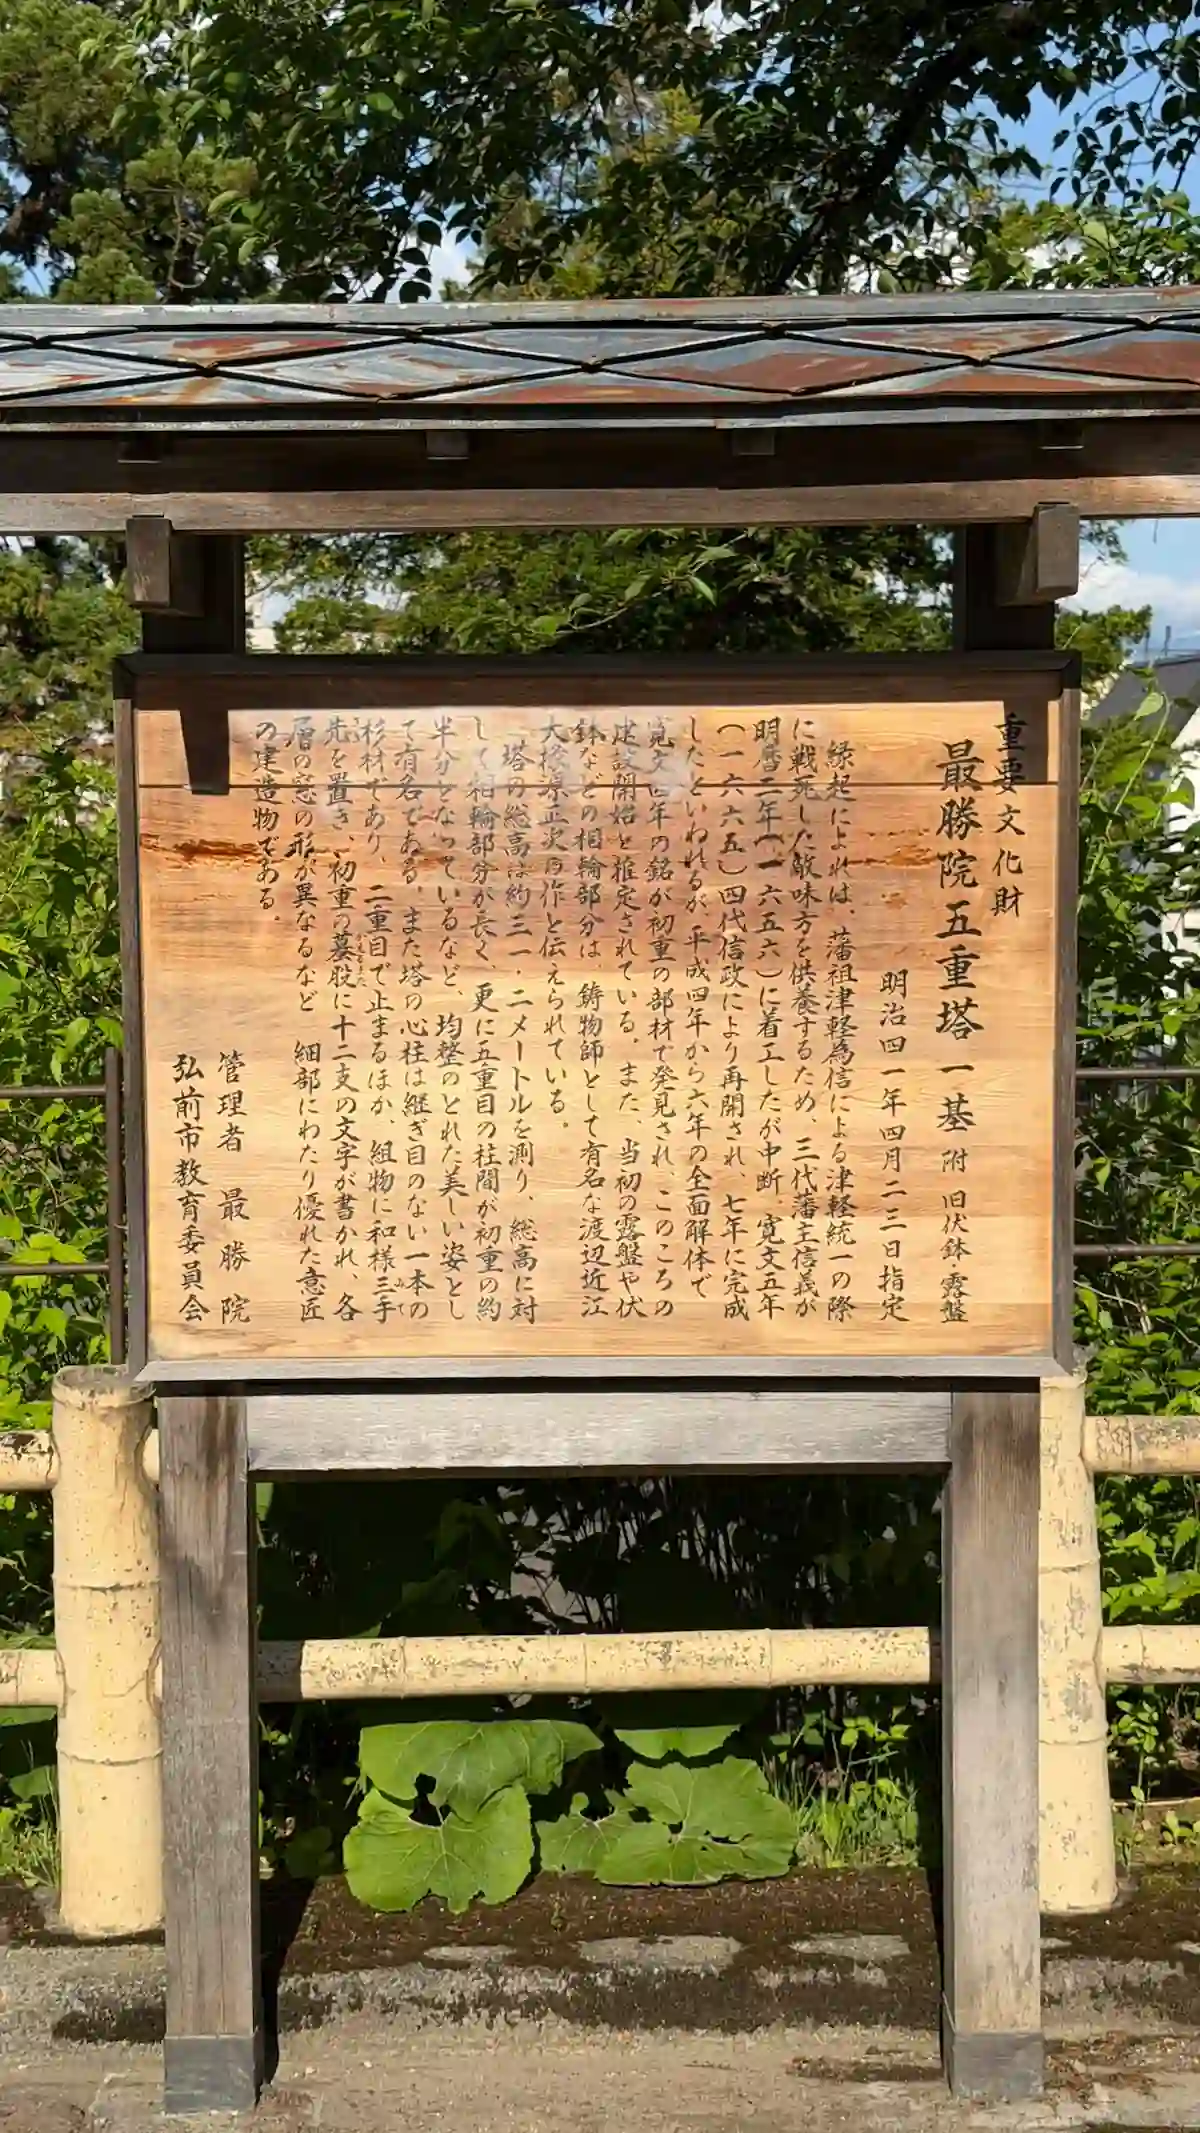 重要文化財
最勝院五重塔 一基 附 旧伏鉢・露盤
明治四一年四月二三日指定
縁起によれは、藩祖津軽為信による津軽統一の際
に戦死した敵味方を供養するため、三代藩主信義が
明暦二年(一六五六)に着工したが中断、寛文五年
(一六六五)四代信政により再開され、七年に完成
したといわれるが、平成四年から六年の全面解体で
寛文四年の銘が初重の部材で発見され、このころの
建設開始と推定されている。また、当初の露盤や伏
鉢などの相輪部分は、鋳物師として有名な渡辺近江
大掾源正次の作と伝えられている。
塔の総高は約三一・二メートルを測り、総高に対
して相輪部分が長く、更に五重目の柱間が初重の約
半分となっているなど、均整のとれた美しい姿とし
て有名である。また塔の心柱は継ぎ目のない一本の
杉材であり、二重目で止まるほか、組物に和様三手
先を置き、初重の蟇股に十二支の文字が書かれ、各
層の窓の形が異なるなど 細部にわたり優れた意匠
の建造物である。
管理者 最勝院
弘前市教育委員会